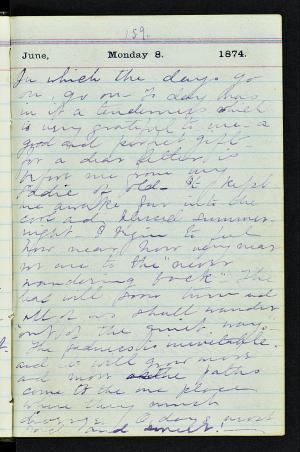 159.
June, Monday 8. 1874.
In which the days go
on, go on. To day has
in it a tenderness which
is very grateful to me - a
good and perfect gift -
or a dear letter is
before me from my
Eddie of old - It kept
me awake far into the
cool and summer
night. I begin to feel
how near, how very near
we are to the "never
wandering back". The
will soon turn and
all of us shall wander
out of the quiet way.
The sadness is inevitable.
and it will grow more
and more as the paths
come to the one place
where they must
diverge. O, days, most
and sweet!